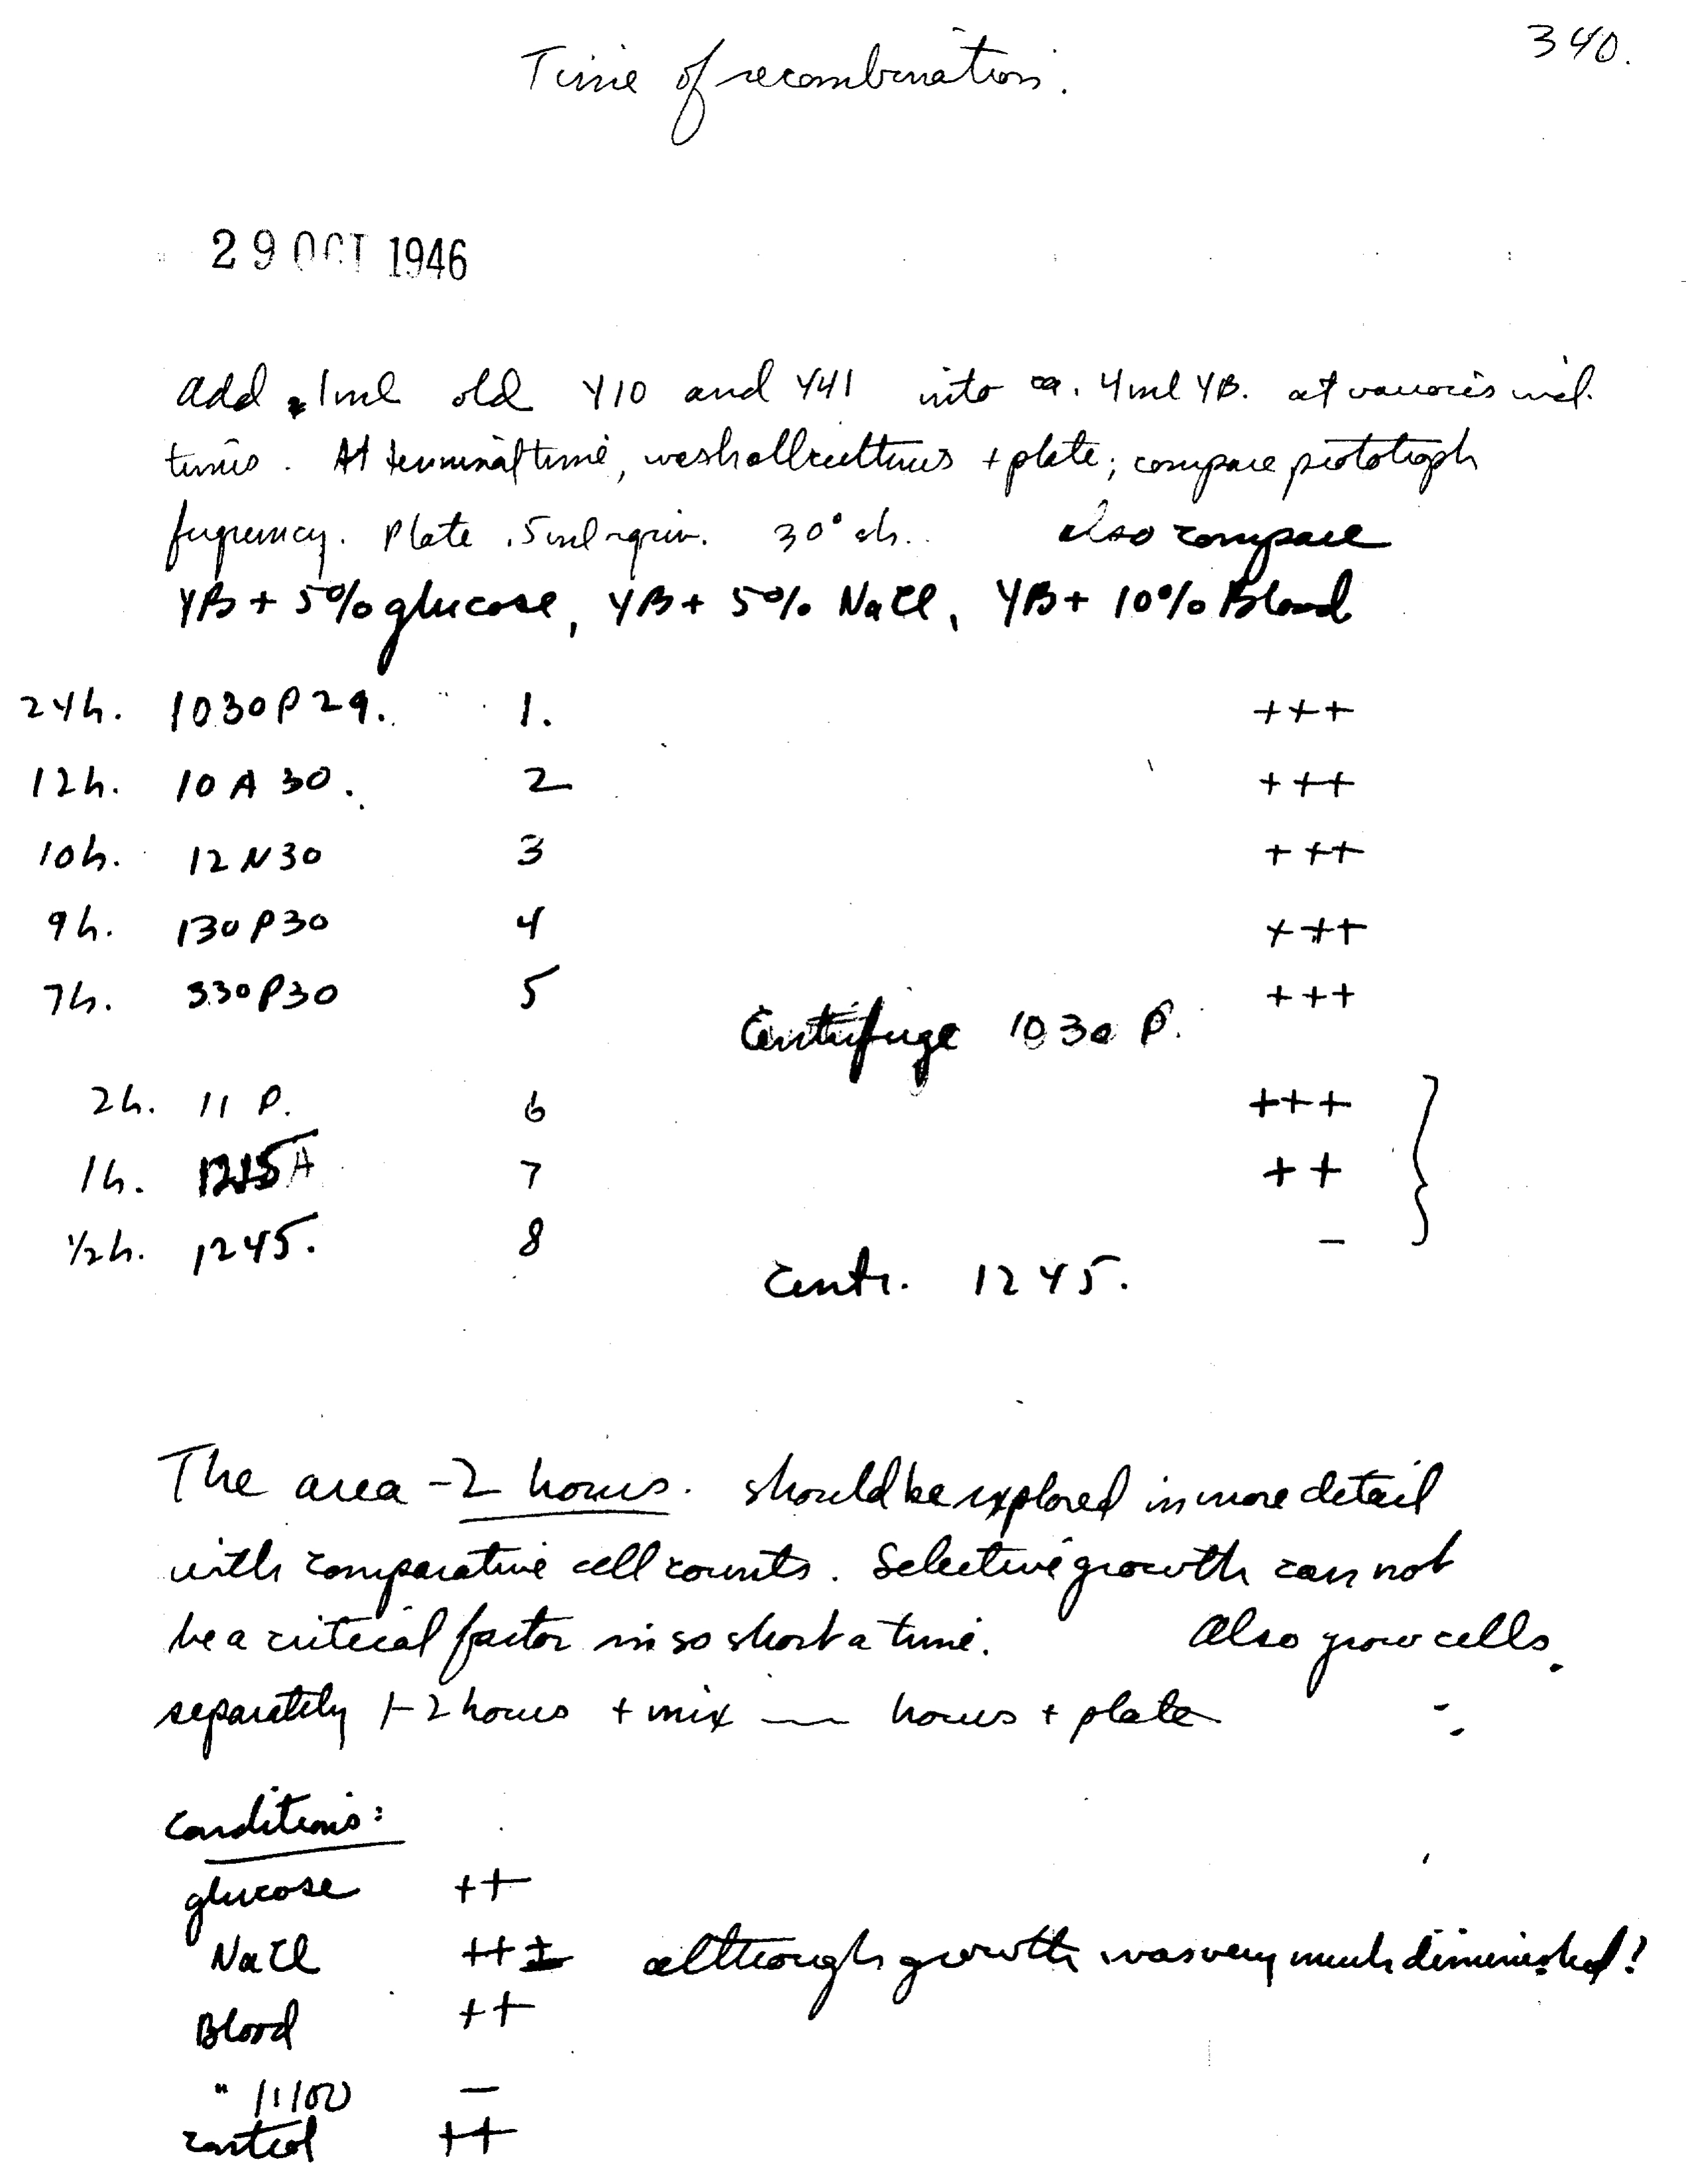 340.
Time of recombination.
29 OCT 1946
Add .1ml old Y10 and Y41 into ca. 4ml YB. at various
times. At terminal time, wash all cultures + plate; compare prototroph
frequency. Plate .5ml 30° also compare
YB + 5% glucose, YB + 5% NaCl, YB + 10% Blood
24h. 1030P29. 1. +++
12h. 10 A 30. 2 +++
10h. 12N30 3 +++
9h. 130P30 4 +++
7h. 330P30 5 +++
Centrifuge 1030 P.
2h. 11 P. 6 +++
1h. 7 ++
1/2h. 1245. 8 –
Centr. 1245.
The area -2 hours. should be explored in more detail
with comparative cell counts. Selective growth can not
be a critical factor in so short a time. Also grow cells
separately 1-2 hours + mix — hours + plate
Conditions:
glucose ++
NaCl ++± although growth was very much diminished!
Blood ++
" 1:100 –
control ++